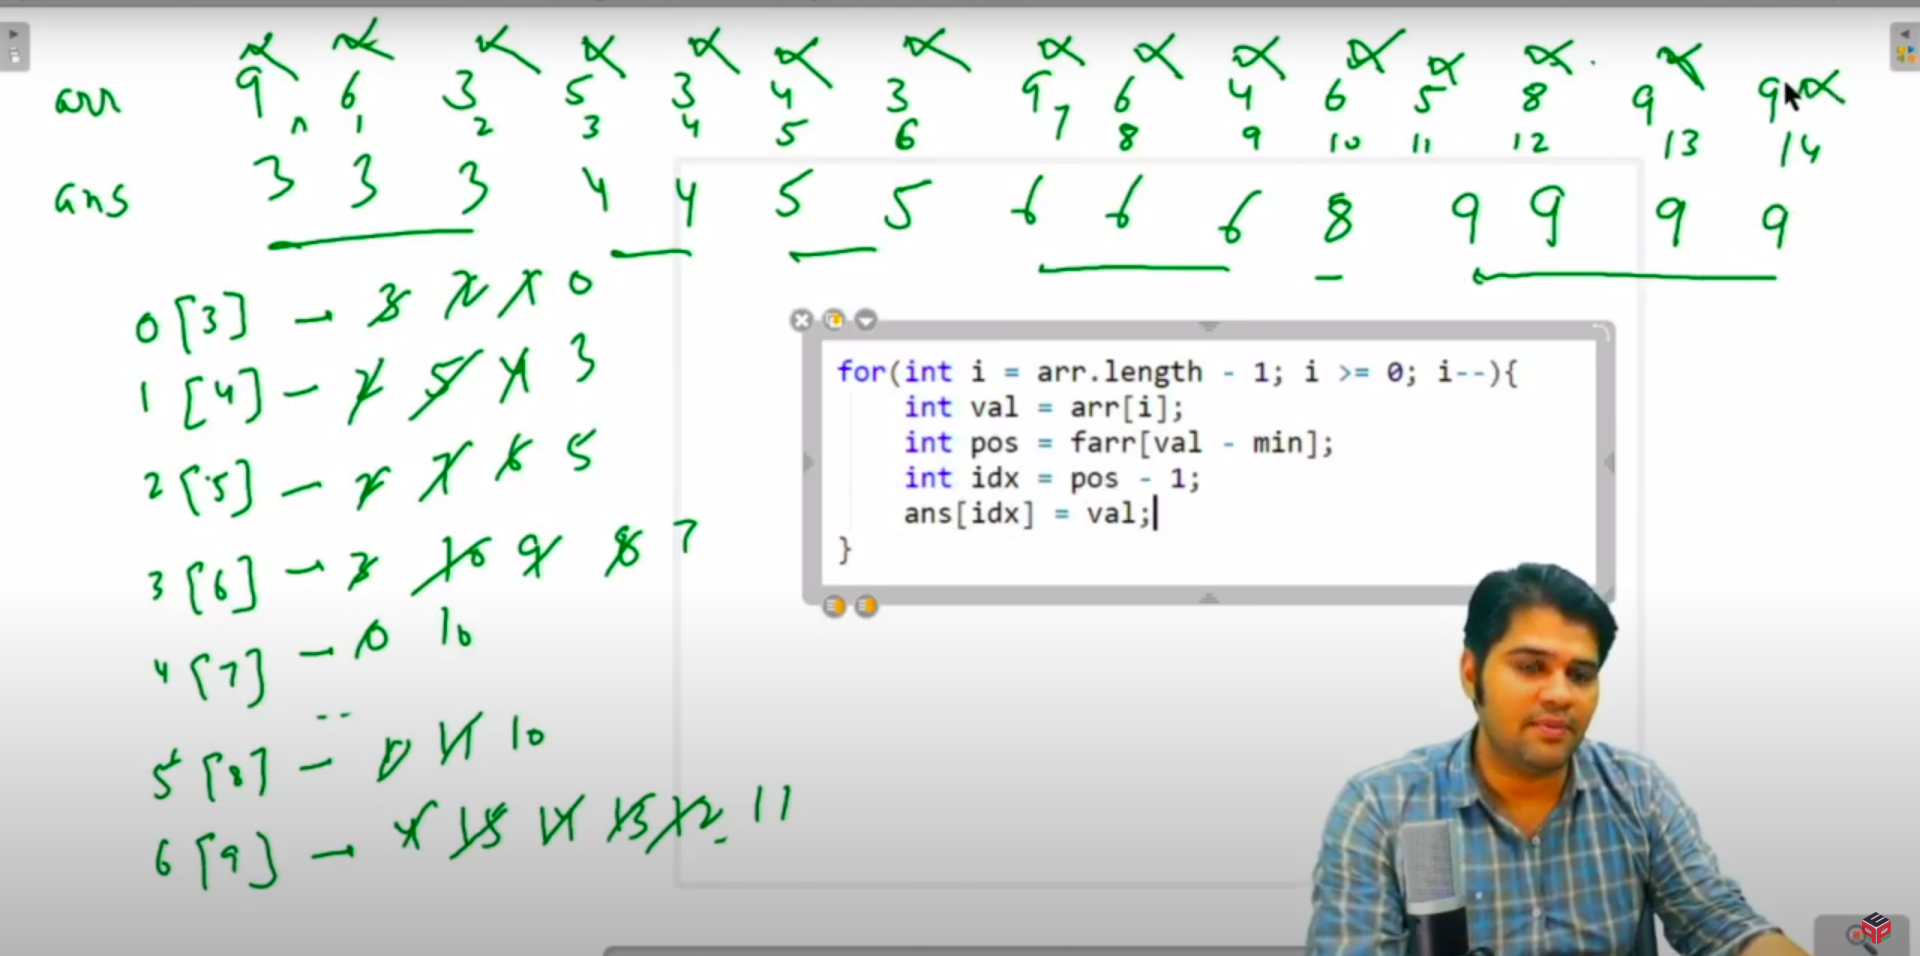 arr 9 6 3 5 3 4 3 9 6 4 6 5 8 9 9
1 2 3 4 5 6 7 8 9 10 11 12 13 14
ans 3 3 3 4 4 5 5 6 6 6 8 9 9 9 9
0 [3] - 3 2 1 0
1 [4] - 2 5 4 3
2 [5] - 2 7 6 5
3 [6] - 3 10 9 8 7
4 [7] - 0 10
5 [8] - 0 11 10
6 [9] - 4 15 14 13 12 11
for(int i = arr.length - 1; i >= 0; i--){
int val = arr[i];
int pos = farr[val - min];
int idx = pos - 1;
ans[idx] = val;
}